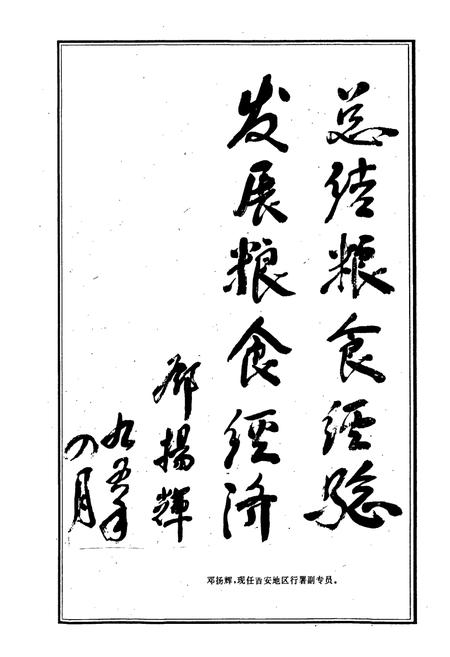 总结粮食经验
发展粮食经济
邓揚輝
九五年
四月
邓扬辉，现任吉安地区行署副专员。